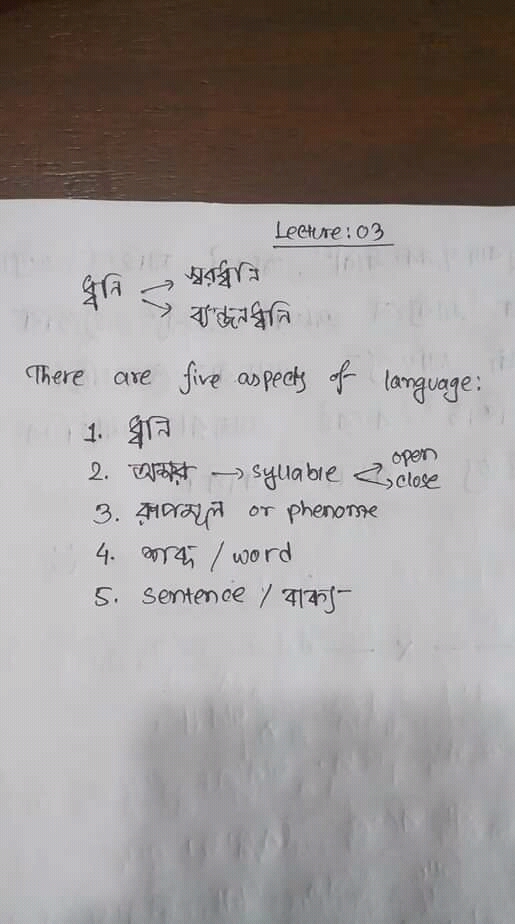 Lecture: 03
ধ্বনি → স্বরধ্বনি
→ ব্যঞ্জনধ্বনি
There are five aspects of language:
1. ধ্বনি
2. অক্ষর → syllable → open
→ close
3. রূপমূল or phenome
4. শব্দ / word
5. sentence / বাক্য